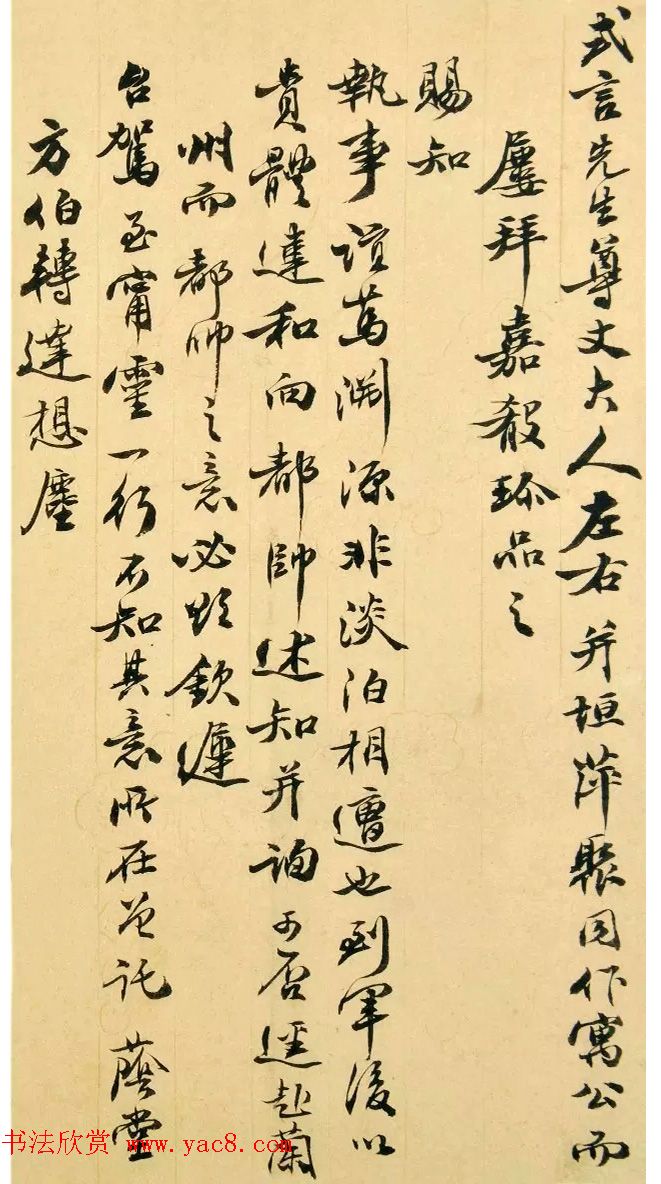 式言先生尊丈大人左右并垣萍聚同作寓公而
屢拜嘉殽珎品之
賜知
執事誼蔦淵源非淡泊相遭也到軍後以
貴體違和向都帥述知并詢可否逕赴蘭
州而都帥之意必欲欽遲
台駕至甯靈一行不知其意所在曾託蔭堂
方伯轉達想塵
书法欣赏 www.yac8.com